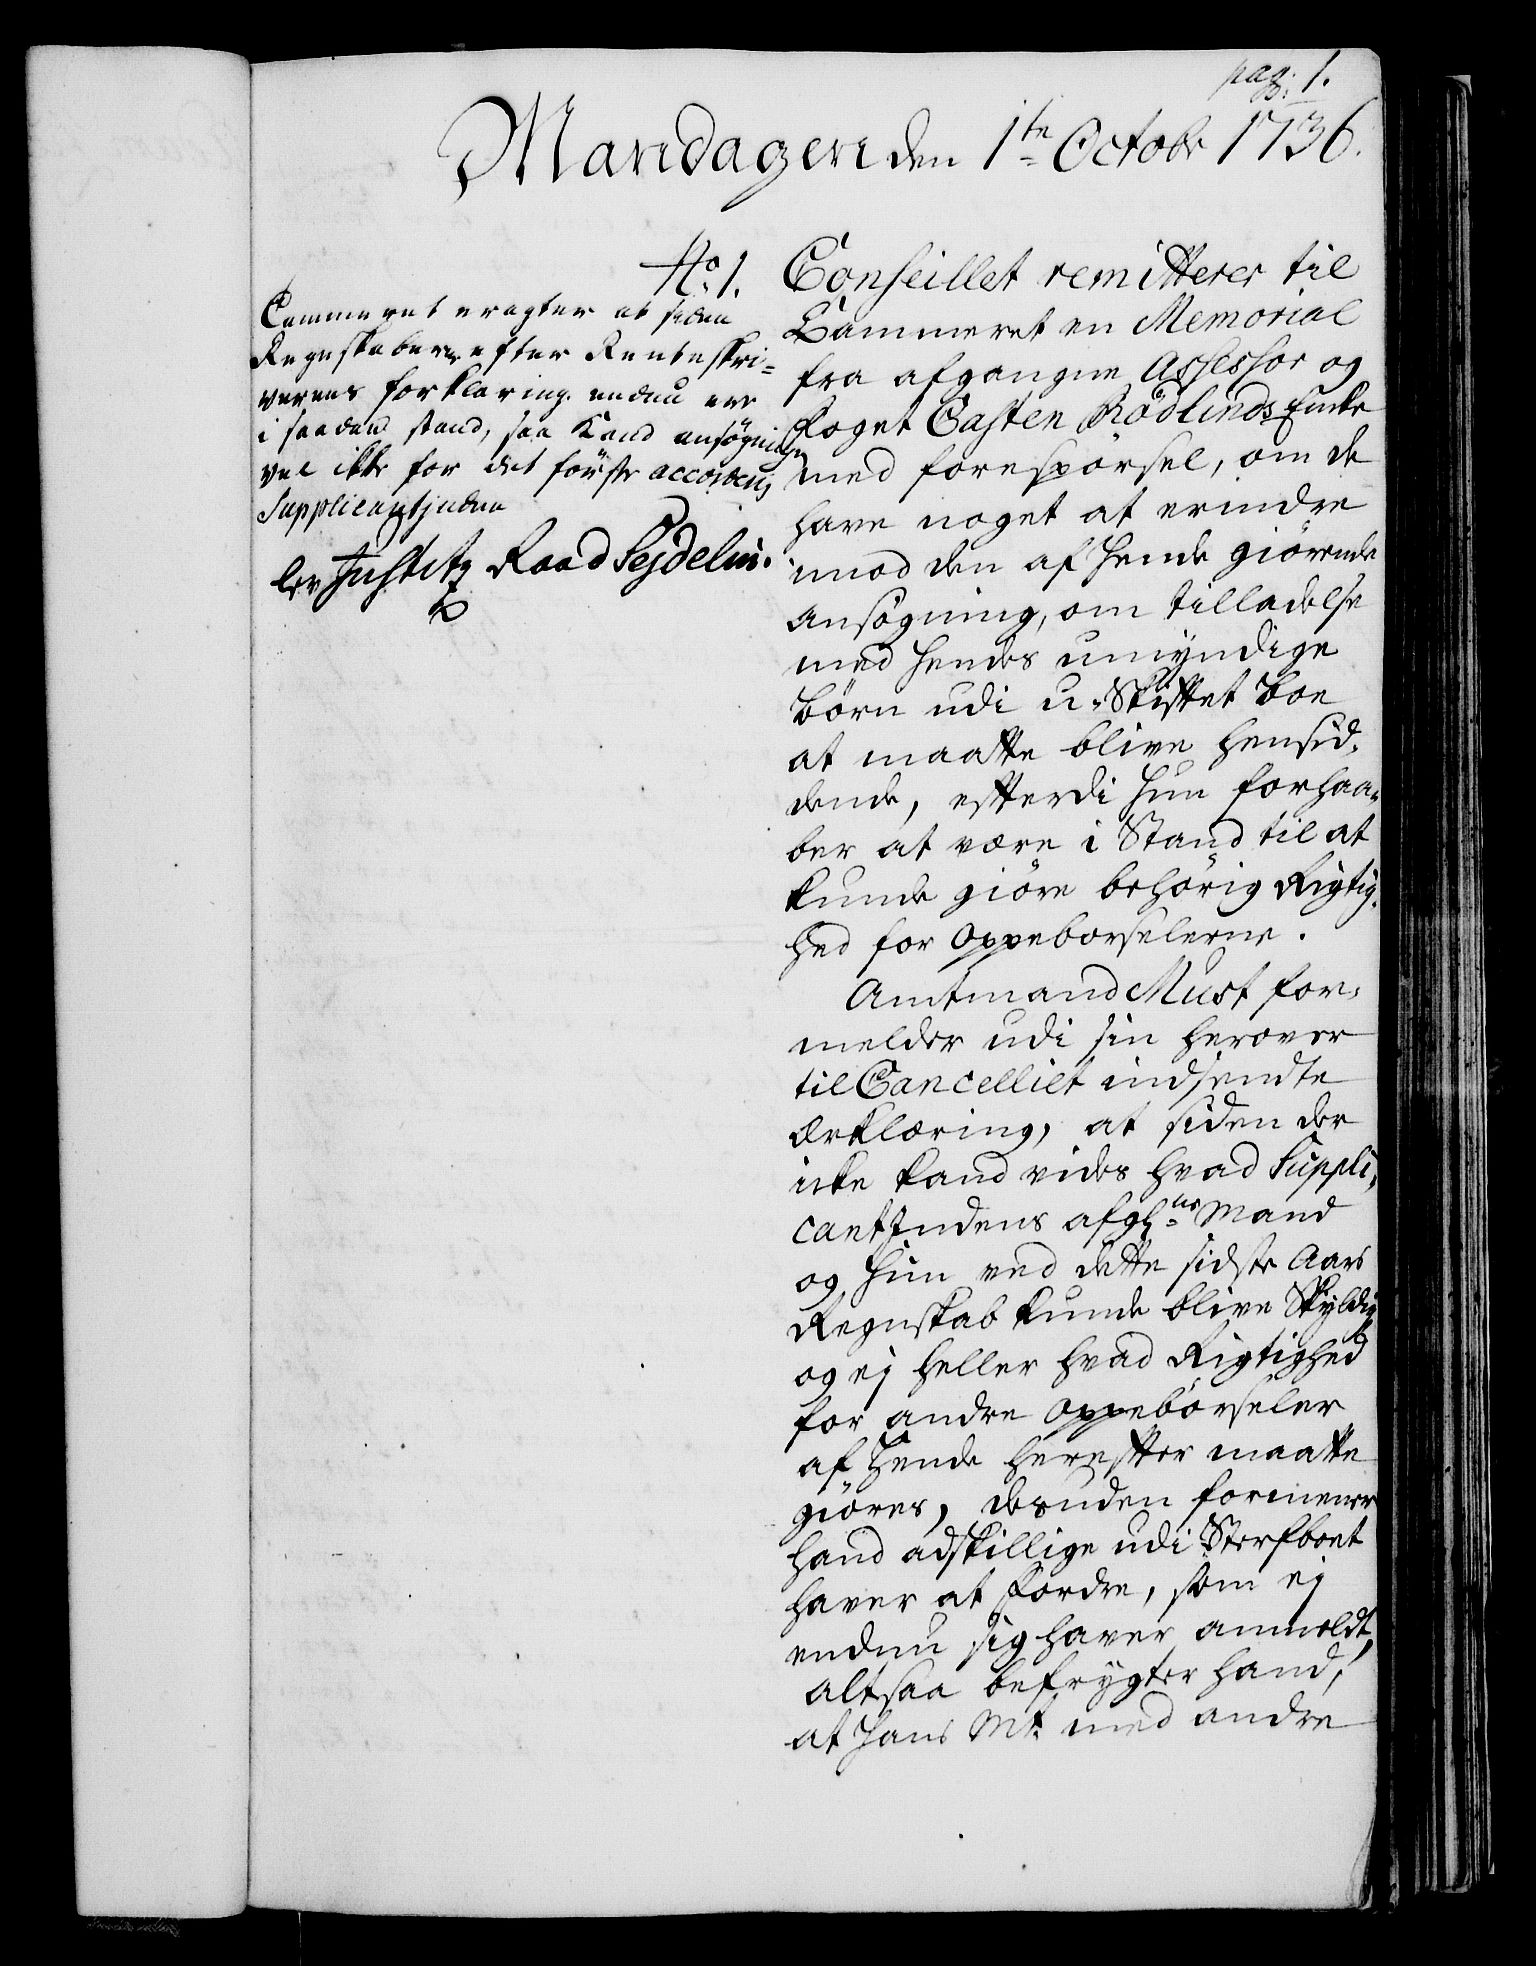 pag: 1.
Mandagen den 1te Octobr 1736.
No 1.
Cammeret eragter at siden
Regnskaberne efter Renteskri-
verens forklaring endnu ere
i saadan stand, saa Kand ansøgningen
vel ikke for det første accorderis
Supplicantinden
Justitz Raad Sejdelin.
Conseillet remitterer til
Cammeret en Memorial
fra afgangne Assessor og
Foget Casten Rödlinds Encke
med forespørsel, om de
have noget at erindre
imod den af Hende giørende
ansøgning, om tilladelse
med hendes umyndige
Børn udi u-Skiftet Boe
at maatte blive hensid-
dende, efterdi hun forhaa-
ber at være i Stand til at
kunde giøre behørig Rigtig-
hed for Oppeborselerne.
Amtmand Must for-
melder udi sin herover
til Cancelliet indsendte
Erklæring, at siden der
icke kand vides hvad Suppli-
cantIndens afgl: ne Mand
og Hun ved dette sidste Aars
Regnskab kunde blive Skyldig
og ej heller hvad Rigtighed
for andre Oppebørseler
af Hende herefter maatte
giøres, desuden formener
hand adskillige udi Sterfboet
haver at fordre, som ej
endnu sig haver anmeldt,
altsaa befrygter hand,
at Hans Mt. med andre